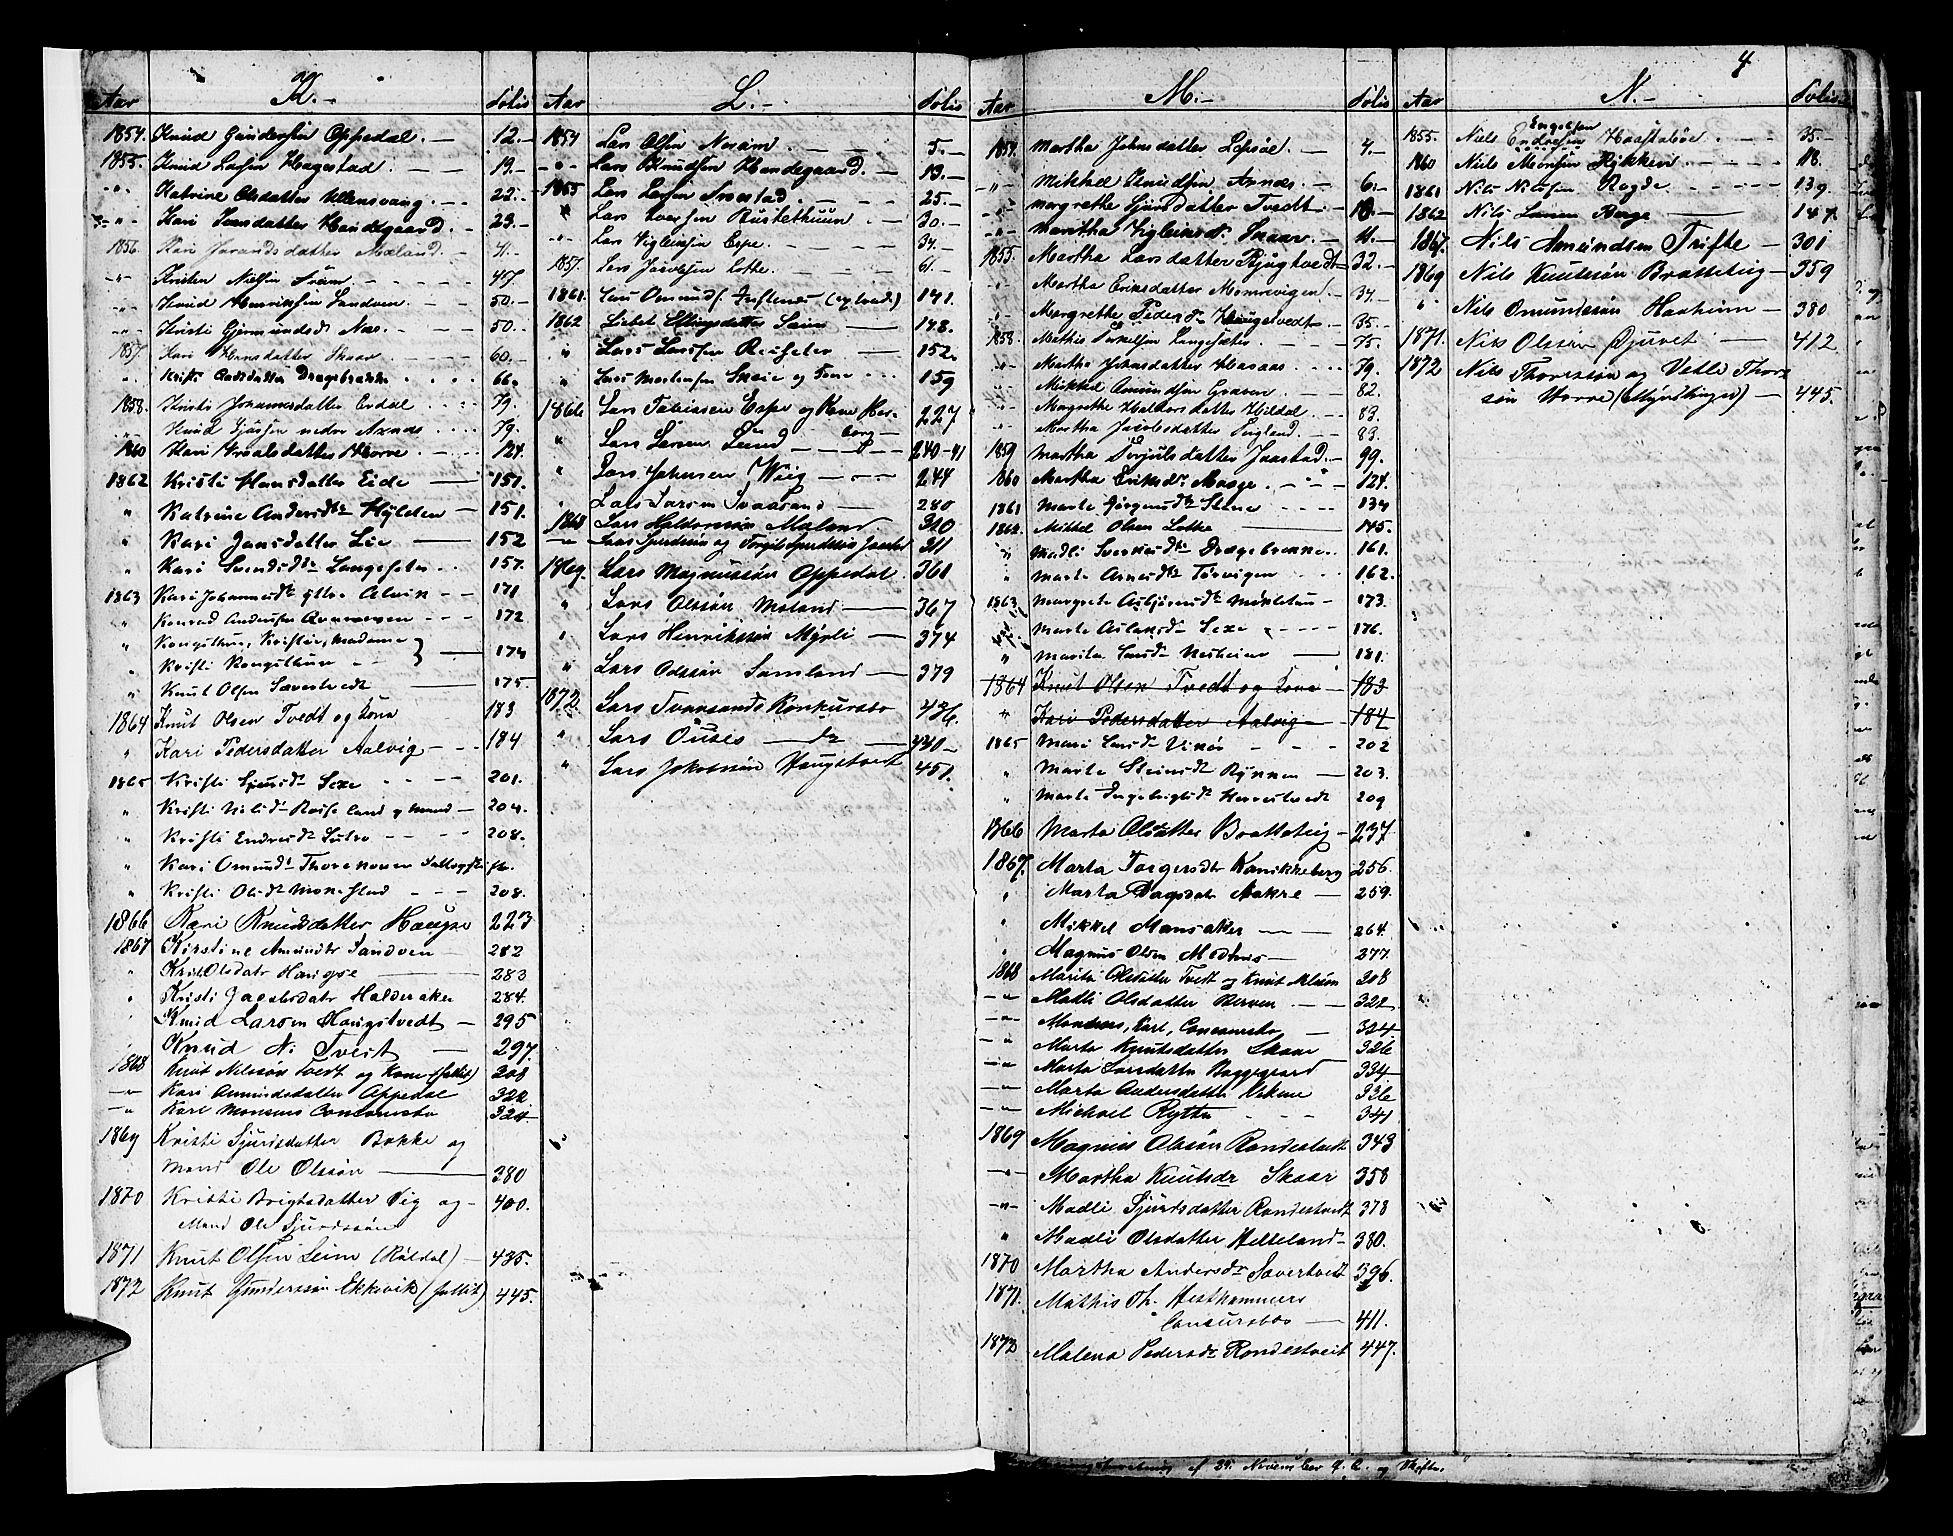 K.
Aar Folio
1854. Knud Gundersen Appedal. 12.
1855. Knud Larsen Hagestad. 19.
" Katrine Olsdatter Ullensvang. 22.
" Kari Hansdatter Handegaard. 23.
1856. Kari Jorandsdatter Mæland. 41.
" Kristen Nielsen 47.
" Knud Henriksen Sandven. 50.
" Kristi Gjermundsd. Næs. 50.
1857. Kari Hansdatter Skaar. 60.
" Kristi Drægebrække 66.
1858. Kristi Johannesdatter Erdal. 79.
" Knud nedre Aznæs 79.
1860 Kari datter Horre. 124.
1862 Kristi Hansdatter Eide 151.
" Katrine Andersdtr Hylsten 151.
" Kari Jansdatter Lie 152
" Kari Svendsdtr Langeseter 157.
1863 Kari Johannesdtr Alvik 171
" Konrad Andersen 172
" Kongsthun, Kristie, Madame
" Kristi Kongsthun 174
" Knut Olsen Sævertvedt 175
1864 Knut Olsen Tvedt og Kone 183
" Kari Pedersdatter Aalvig 184
1865 Kristi Sjursdtr Sexe 201.
" Kristi Nilsdtr Reise land og mand 204.
" Kristi Endresdtr 208.
" Kari Omundsdtr Thorsnæs
" Kristi Olsdtr 208.
1866 Kari Knudsdatter Haugse 223
1867 Kirstine Amundsdtr Sandven 282
" Kristi Olsdatr Haugse 283
" Kristi Jacobsdatr Halderaker 284.
Knud Larsen Haugstvedt 295
Knud N. Tveit 297.
1868 Knut Nelsson Tvedt og Kone (fallit) 308
" Kari Amundsdatter Appedal 322
" Karl Monsens Concursbo 324.
1869 Kristi Sjursdatter Bakke og
Mand Ole Olssön 380
1870 Kristi Brigtsdatter Vig og 400.
Mand Ole Sjurdssön
1871 Knut Olsen Seim (Röldal) 435.
1872 Knut Gunderssön Ekkvik (fallit) 445.
L.
Aar Folio
1854 Lars Olsen 5.
" Lars Knudsen Handegaard. 19.
1855 Lars Larsen 25.
" Lars Iversen Rustethuun 30.
" Lars Vigleiksen Espe. 34.
1857. Lars Jacobsen Lotte. 61.
1861. Lars Omundsen 141.
1862 Lisbet Ellingsdatter Seim 148.
" Lars Larssen Reiseter 152.
" Lars Mortensen Skeie og Kone 159
1866 Lars Tobiassen Espe og Kone 227
" Lars Larsen Lund 240-41
" Lars Johnsen Wiig 244
" Lars Larsen Svaasand 280
1868 Lars Haldorssön Maland 310
" Lars Sjurdssön og Torgils Sjurdssön Jaastad 311
1869. Lars Magnussön Appedal 361
" Lars Olssön Maland 367
" Lars Henrikssön Myrli 374
" Lars Oddssön Samland 379
1872. Lars Tvaasands Konkursbo 436.
Lars Ouses do 440
" Lars Jokobssön Haugstvedt 451.
4
M.
Aar Folio
1854. Martha Johnsdatter Lepsöe. 4.
" Mikkel Knudsen Aznæs. 6.
" Margrethe Sjursdatter Tvedt. 10.
" Maritha Vigleiksdr. Skaar. 11.
1855. Martha Larsdatter Bjugtvedt 32.
Martha Eriksdatter Momrevigen. 34.
Margrethe Peders Dr Haugstvedt. 35.
1858. Mathis Torkelsen Langesæter. 75.
Martha Johnsdatter Aasaas. 79.
" Mikkel Amundsen Graven. 82.
Margrethe Haldorsdatter Hildal. 83.
" Martha Jacobsdatter England. 83.
1859 Martha Torjulsdatter Jaastad. 99.
1860 Martha Eriksdr. Mauge. 124.
1861 Marte Jörgensdtr Stene 134
1862. Mikkel Olsen Lotthe 145.
" Madli Sverkesdtr Drægebrenne 161.
" Marte Arnesdtr Törvigen 162.
1863. Margrete Asbjörnsdtr Mikletun 173.
Marte Aslaksdr Sexe 176.
" Marita Larsdr Nesheim 181.
1864 Knut Olsen Tvedt og Kone 183
" Kari Pedersdatter Aalvig 184
1865 Mari Larsdr Vikör 202
" Marte Steinsdr Rynnen 203.
" Marte Ingebrigtsdr Herrestvedt 209
1866 Marta Olsdatter Bratteteig 237.
1867. Marta Torgersdtr Kanikkeberg 256
" Marta Dagsdatr Aakre 259.
Mikkel Mansaker 264.
" Magnus Olsen Medhus 277.
1868 Marita Olsdatter Tvedt og Knut Nelssön 308
" Madli Olsdatter Berven 322
" Monsens, Karl, Concursbo 324
" Marta Knutsdatter Skaar 326
" Marta Larsdatter Byggegaard 334
" Marta Andersdatter Vikene 336
" Michael Rytter 341
1869 Magnus Olssön Rondestvedt 343
" Martha Knutsdr Skaar 358
" Madli Sjursdatter Rondestvedt 378
" Madli Olsdatter Helleland 380.
1870 Martha Andersdr Sævertvedt 396.
1871. Mathis Th. Hesthammers
Concursbos 411.
1872 Malena Pedersdr Rondestveit 447.
N.
Aar Folio
Engelsen
1855. Niels Endresen Haastaböe. 35.
1860 Niels Monsen Hikken. 118.
1861 Nils Nilssen Rogde 139.
1862 Nils Larsen Berge 147.
1867. Nils Amundsen Trifte 301
1869 Nils Knutssön Bratteteig 359
" Nils Omundssön Haaheim 380
1871. Nils Olssön Djuvet 412
1872 Nils Thorssön og Vetle Thors
sön Horre (Myndlinger) 445.
af 29. November